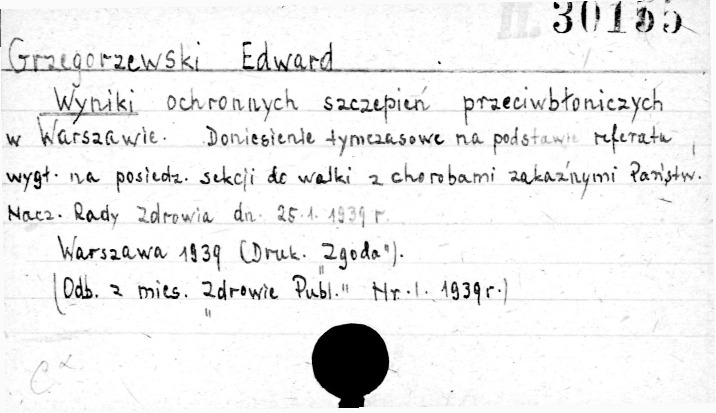 II. 30155
Grzegorzewski Edward
Wyniki ochronnych szczepień przeciwbłoniczych
w Warszawie. Doniesienie tymczasowe na podstawie referatu,
wygł. na posiedz. sekcji do walki z chorobami zakaźnymi Państw.
Nacz. Rady Zdrowia dn. 25.1.1939 r.
Warszawa 1939 (Druk. „Zgoda").
(Odb. z mies. „Zdrowie Publ." Nr. 1. 1939 r.)